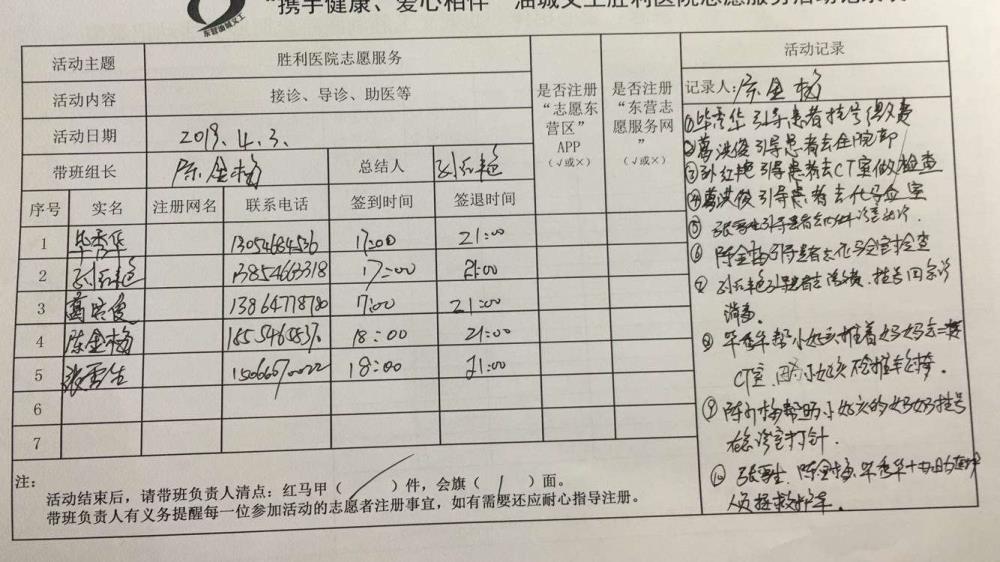 "携手健康、爱心相伴"油城义工胜利医院志愿服务活动记录表
东营油城义工
活动主题 胜利医院志愿服务
活动内容 接诊、导诊、助医等
活动日期 2019.4.3.
带班组长 陈金梅 总结人 孙红艳
是否注册"志愿东营区"APP（√或×）
是否注册"东营志愿服务网"（√或×）
序号 实名 注册网名 联系电话 签到时间 签退时间
1 毕秀华 13054684536 17:00 21:00
2 孙红艳 13854663318 17:00 21:00
3 葛洪俊 13864778780 17:00 21:00
4 陈金梅 18:00 21:00
5 张雪生 15066670022 18:00 21:00
6
7
活动记录
记录人:陈金梅
①毕秀华引导患者挂号缴费
②葛洪俊引导患者去住院部
③孙红艳引导患者去CT室做检查
④葛洪俊引导患者去化验室
⑤张雪生引导患者去
⑥陈金梅引导患者去化验室检查
⑦孙红艳引导患者去缴费.挂号
消毒.
⑧毕秀华帮小姑娘推着妈妈去
CT室.因小姑娘不会推车
⑨陈金梅帮助小姑娘的妈妈挂号
在急诊室打针.
⑩张雪生.陈金梅.毕秀华
人员
注：
活动结束后，请带班负责人清点：红马甲（ ）件，会旗（ ）面。
带班负责人有义务提醒每一位参加活动的志愿者注册事宜，如有需要还应耐心指导注册。